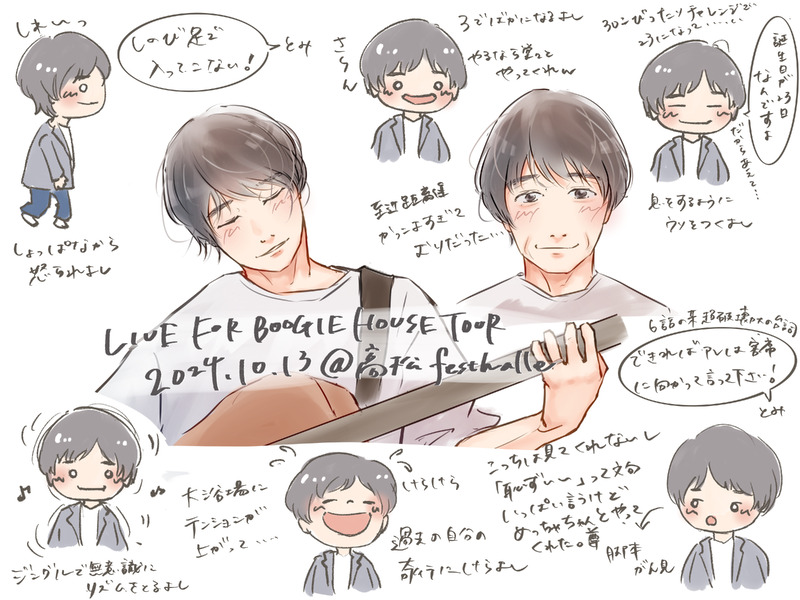 しのび足で
入ってこない!
とみ
しょっぱなから
怒られよし
3でばかになるよし
やるなら堂々と
やってくれw
至近距離達
かっこよすぎて
エリだった…
30こぴったりチャレンジで
23になって……
誕生日が23日
なんですよ
だからあえて…
息をするように
ウソをつくよし
LIVE FOR BOOGIE HOUSE TOUR
2024.10.13@高松 festhalle
できればアレは客席
に向かって言って下さい!
とみ
大谷場に
テンションが
上がって……
ジングルで無意識に
リズムをとるよし
けらけら
過去の自分の
こっちは見てくれないし
「恥ずいー」って文句
いっぱい言うけど
めっちゃちゃんとやって
くれた。尊
がん見